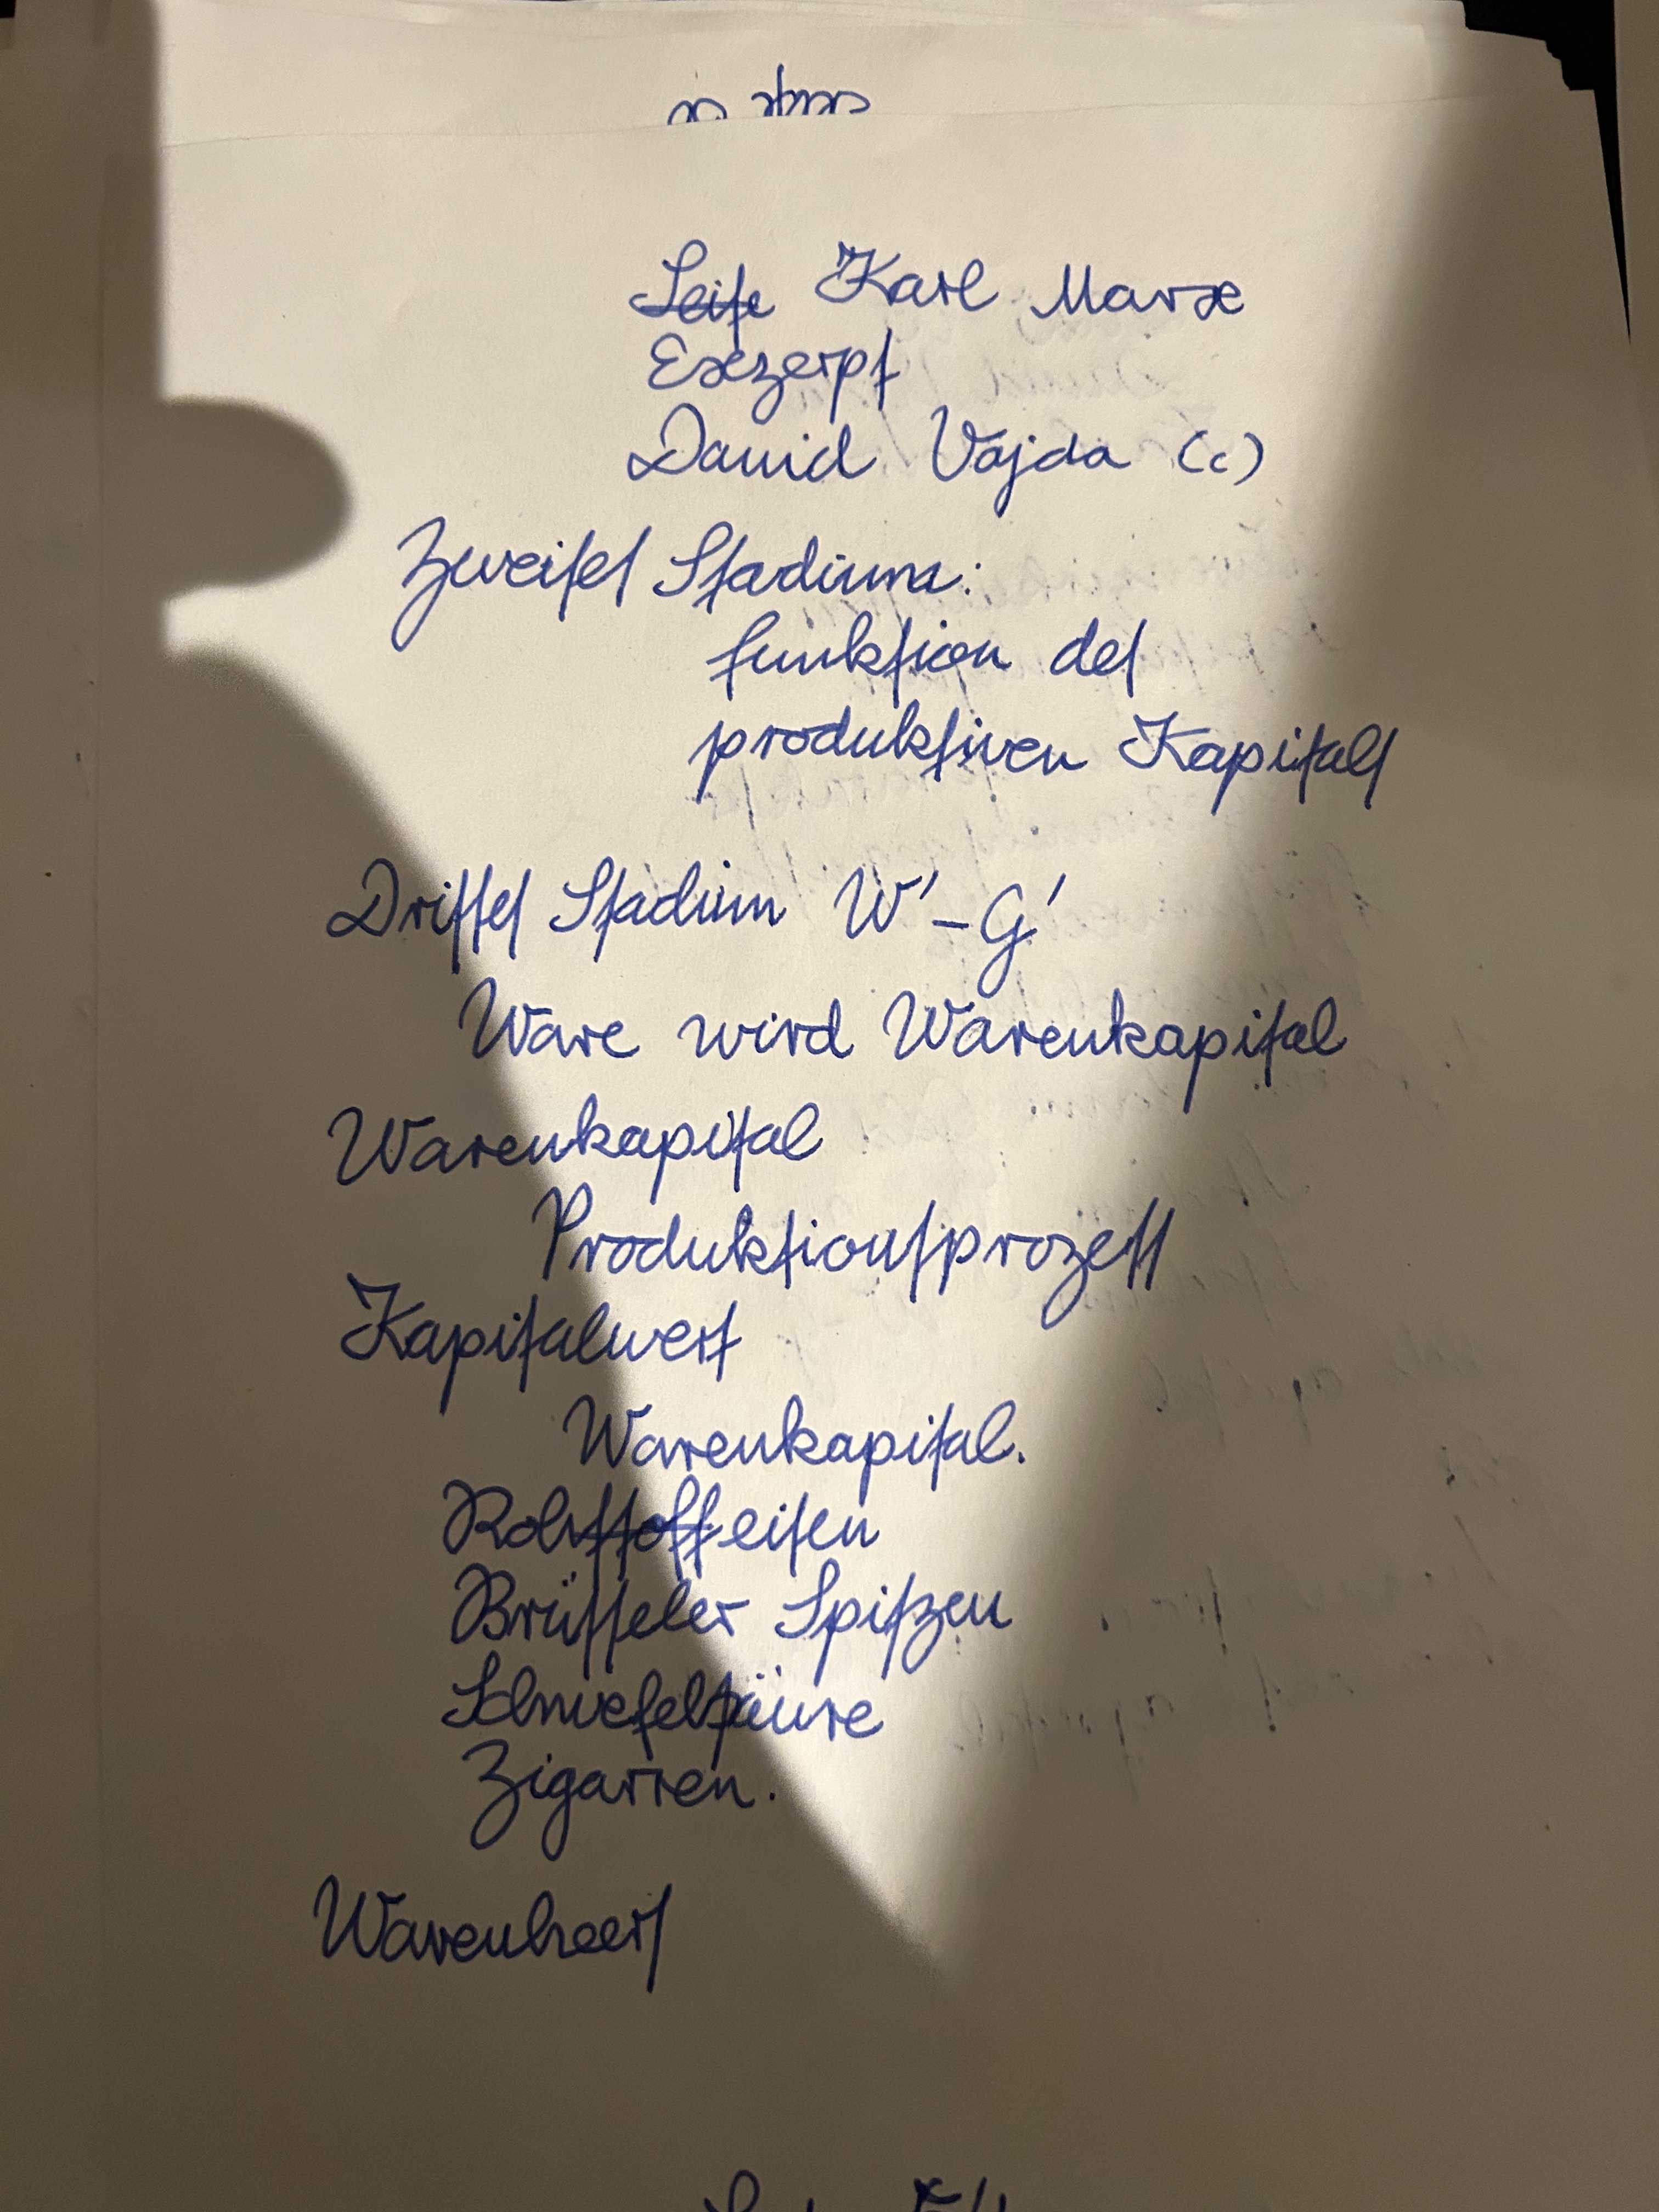 Seite Karl Marx
Exzerpt
David Vajda (c)
Zweites Stadium:
Funktion des
produktiven Kapitals
Drittes Stadium W' – G'
Ware wird Warenkapital
Warenkapital
Produktionsprozess
Kapitalwert
Warenkapital.
Rohstoffeisen
Brüsseler Spitzen
Schwefelsäure
Zigarren.